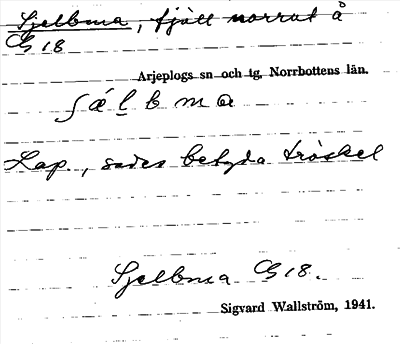 Sjelbma, fjäll norrut å
G 18
Arjeplogs sn och tg, Norrbottens län.
ʃælbma
Lap., sades betyda tröskel
Sjelbma G 18.
Sigvard Wallström, 1941.